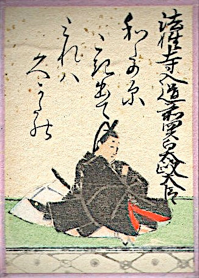 法性寺入道前関白太政大臣
和多の原
こき出て
みれハ
久かたの